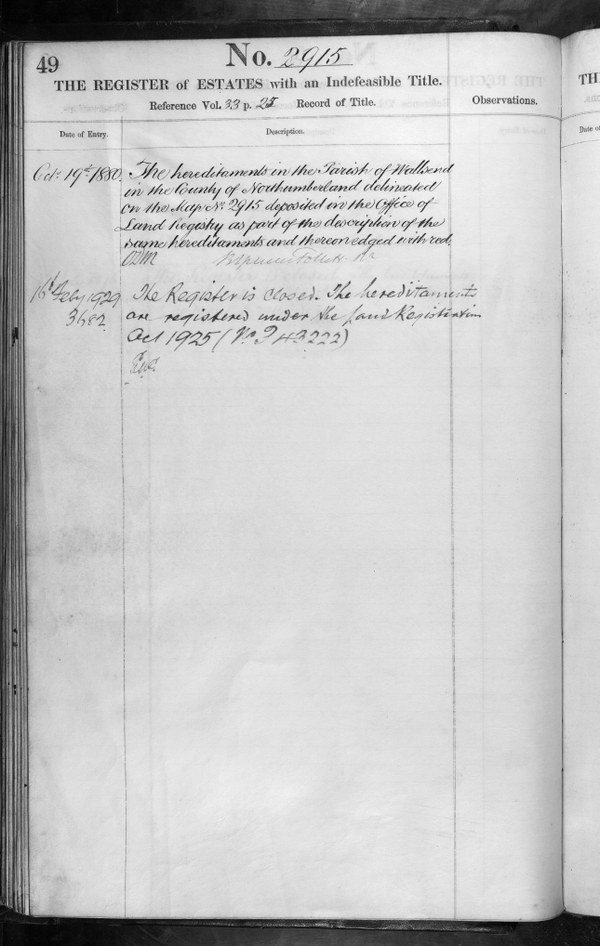 49
No. 2915
THE REGISTER of ESTATES with an Indefeasible Title.
Reference Vol. 33 p. 25 Record of Title.
Observations.
Date of Entry.
Description.
Oct. 19th 1880. The hereditaments in the Parish of Wallsend
in the County of Northumberland delineated
on the Map No. 2915 deposited in the Office of
Land Registry as part of the description of the
same hereditaments and thereon edged with red.
Follett
Feby 1929 The Register is closed. The hereditaments
are registered under the Land Registration
Act 1925 (No. P 43222)
TH
Date of